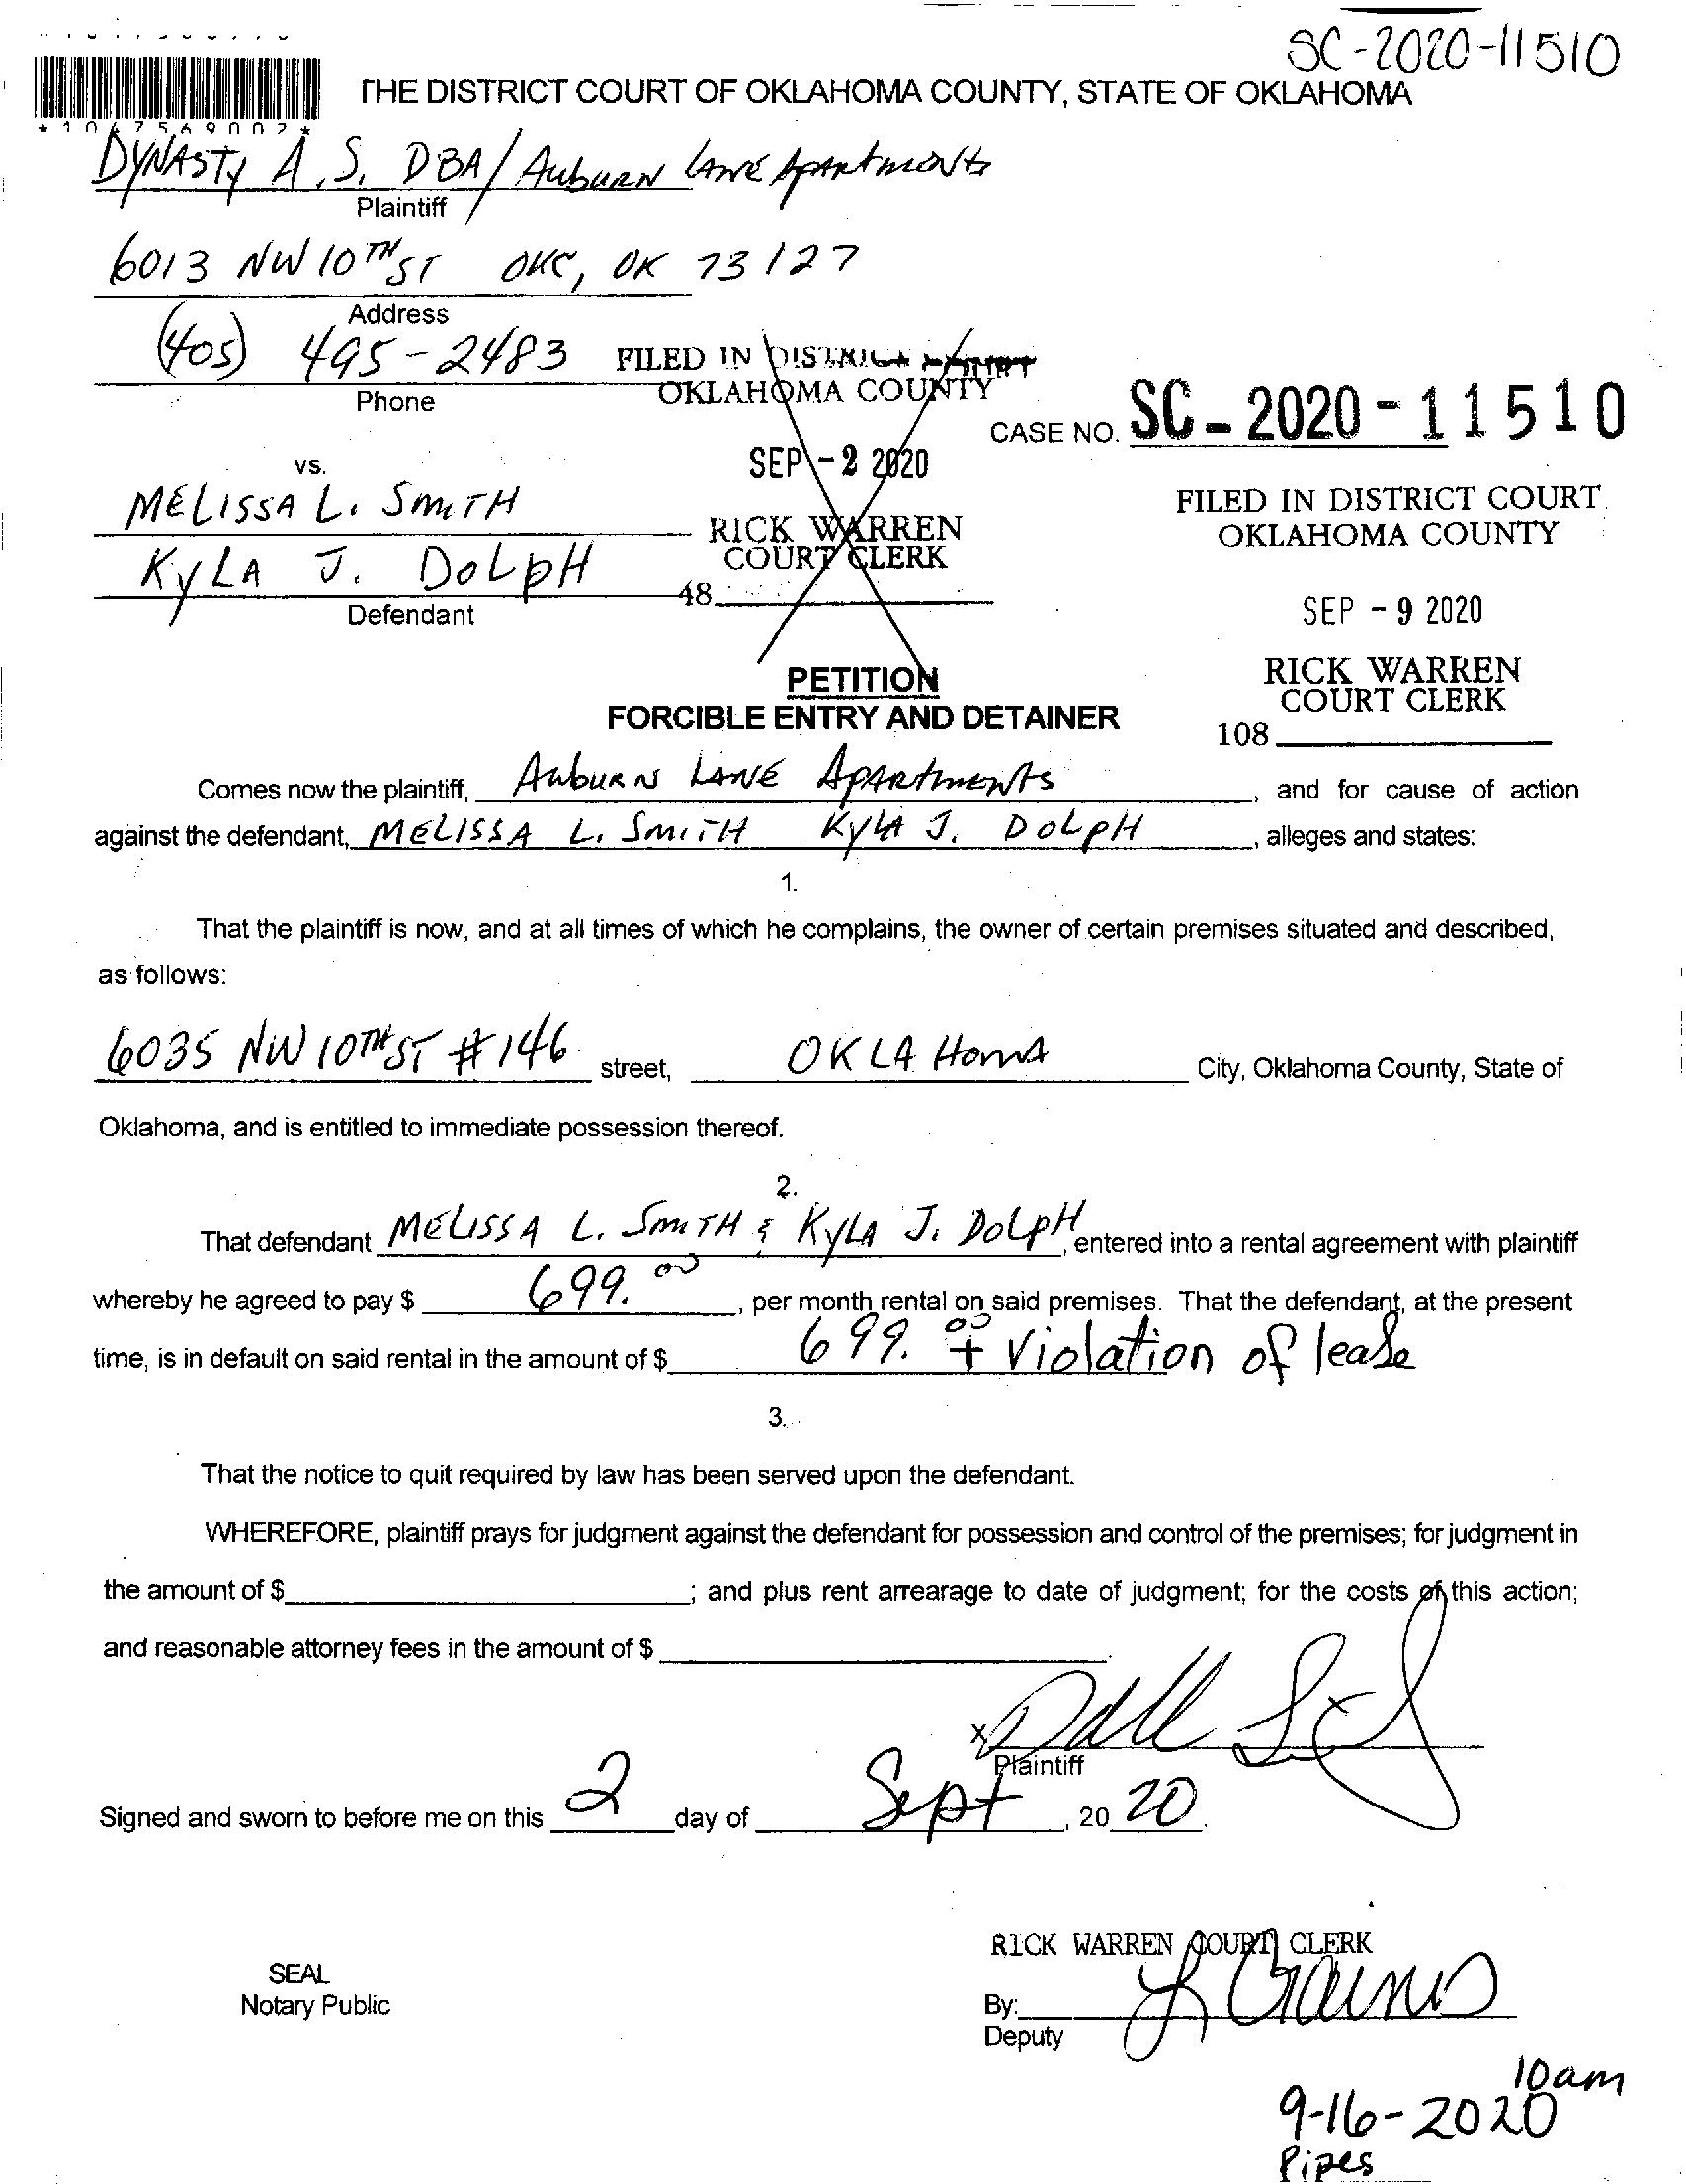 SC-2020-11510
THE DISTRICT COURT OF OKLAHOMA COUNTY, STATE OF OKLAHOMA
DYNASTY A.S. DBA/ Auburn Lane Apartments
Plaintiff
6013 NW 10TH ST OKC, OK 73127
Address
(405) 495-2483
Phone
FILED IN DISTRICT COURT
OKLAHOMA COUNTY
CASE NO. SC-2020-11510
SEP -2 2020
vs.
MELISSA L. SMITH
RICK WARREN
COURT CLERK
48
KYLA J. DOLPH
Defendant
FILED IN DISTRICT COURT
OKLAHOMA COUNTY
SEP -9 2020
RICK WARREN
COURT CLERK
108
PETITION
FORCIBLE ENTRY AND DETAINER
Comes now the plaintiff, Auburn Lane Apartments, and for cause of action
against the defendant, MELISSA L. SMITH KYLA J. DOLPH, alleges and states:
1.
That the plaintiff is now, and at all times of which he complains, the owner of certain premises situated and described,
as follows:
6035 NW 10TH ST #146 street, OKLAHOMA City, Oklahoma County, State of
Oklahoma, and is entitled to immediate possession thereof.
2.
That defendant MELISSA L. SMITH & KYLA J. DOLPH, entered into a rental agreement with plaintiff
whereby he agreed to pay $ 699.00, per month rental on said premises. That the defendant, at the present
time, is in default on said rental in the amount of $ 699.00 + Violation of lease
3.
That the notice to quit required by law has been served upon the defendant.
WHEREFORE, plaintiff prays for judgment against the defendant for possession and control of the premises; for judgment in
the amount of $ ; and plus rent arrearage to date of judgment; for the costs of this action;
and reasonable attorney fees in the amount of $ .
x
Plaintiff
Signed and sworn to before me on this 2 day of Sept, 2020.
RICK WARREN COURT CLERK
SEAL
Notary Public
By:
Deputy
10am
9-16-2020
Pipes